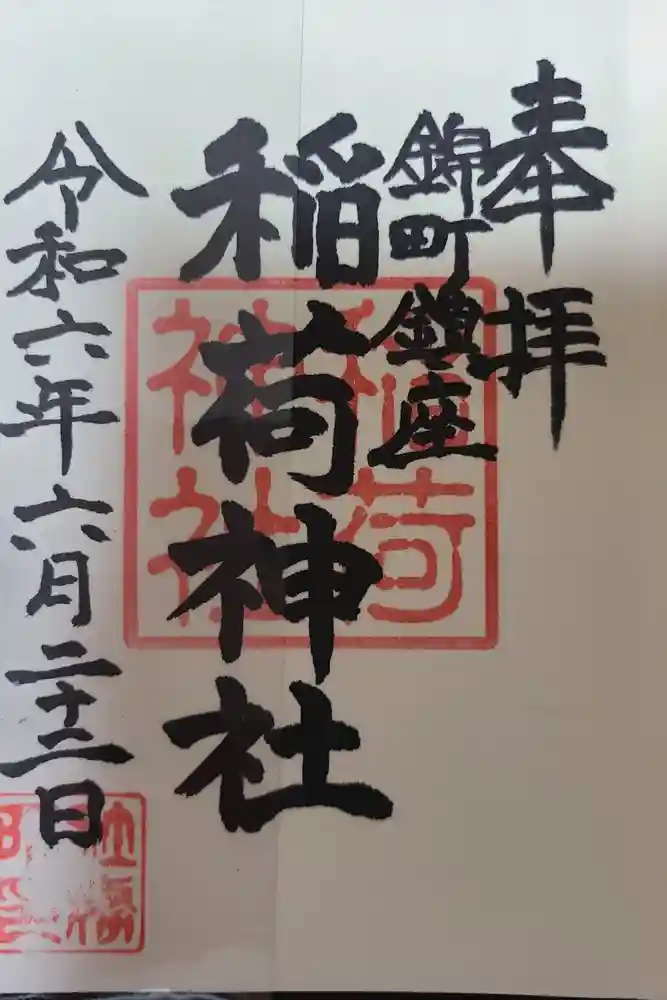 奉拝
錦町鎮座
稲荷神社
令和六年六月二十二日
稲荷神社